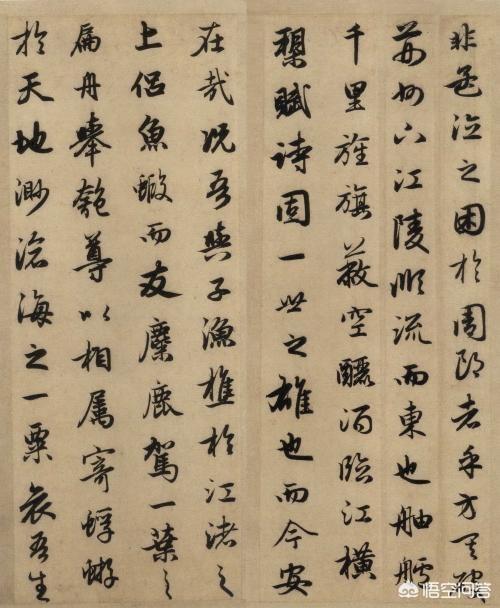 非孟德之困於周郎者乎方其破
荊州下江陵順流而東也舳艫
千里旌旗蔽空釃酒臨江橫
槊賦詩固一世之雄也而今安
在哉况吾與子漁樵於江渚之
上侣魚蝦而友麋鹿駕一葉之
扁舟舉匏尊以相属寄蜉蝣
於天地渺滄海之一粟哀吾生
悟空问答